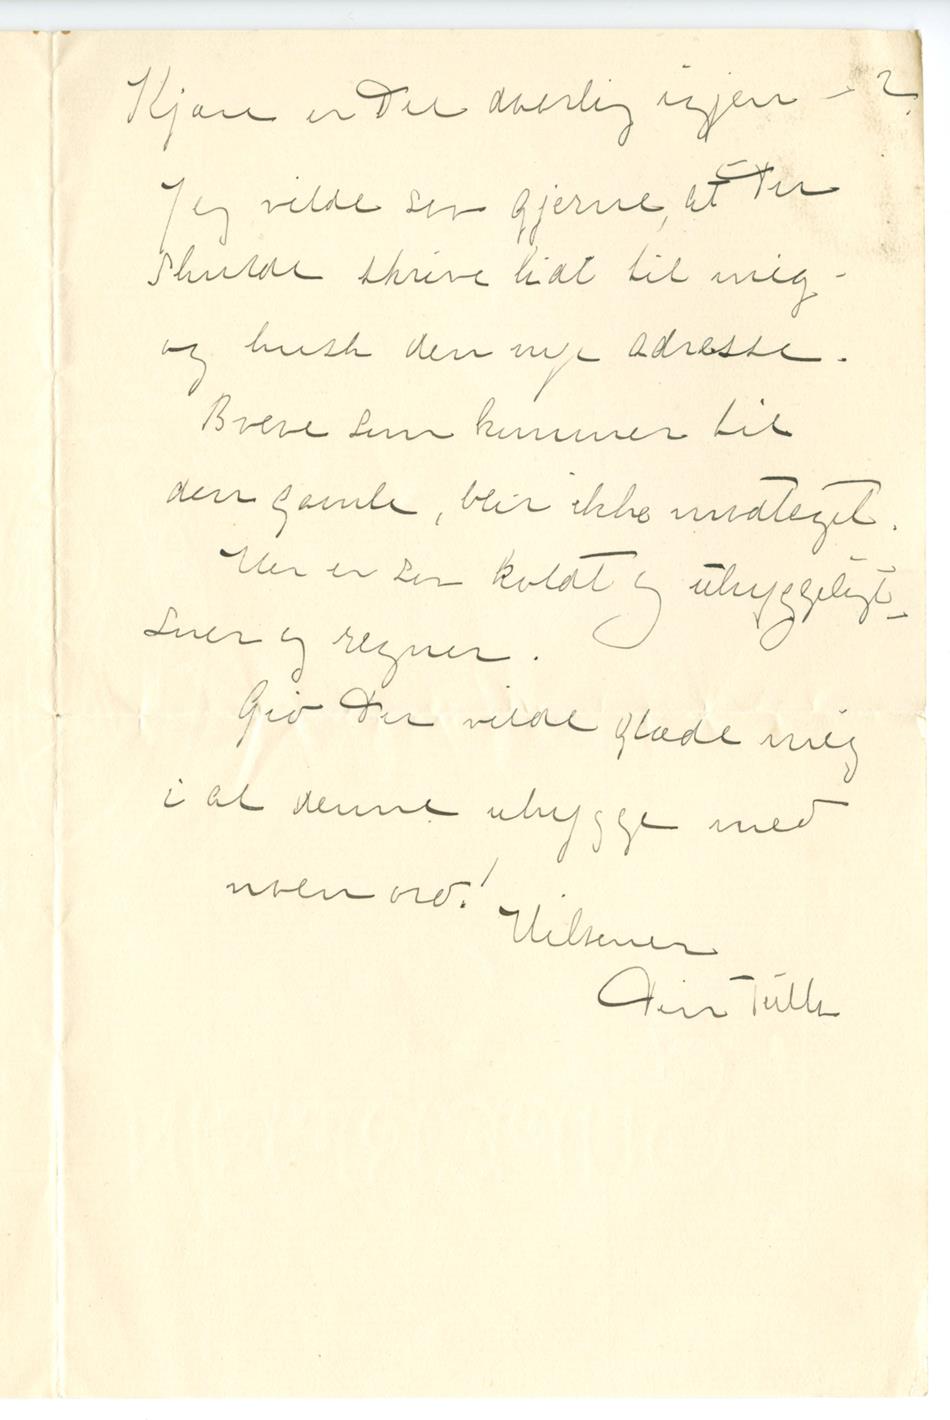 Kjære er Du daarlig igjen – ?
Jeg vilde saa gjerne, at Du
skulde skrive lidt til mig –
og husk den nye adresse.
Breve som kommer til
den gamle, blir ikke modtaget.
Her er saa koldt og uhyggeligt –
sner og regner.
Gid Du vilde glæde mig
i al denne uhygge med
noen ord!
Hilsener
Din Tulla